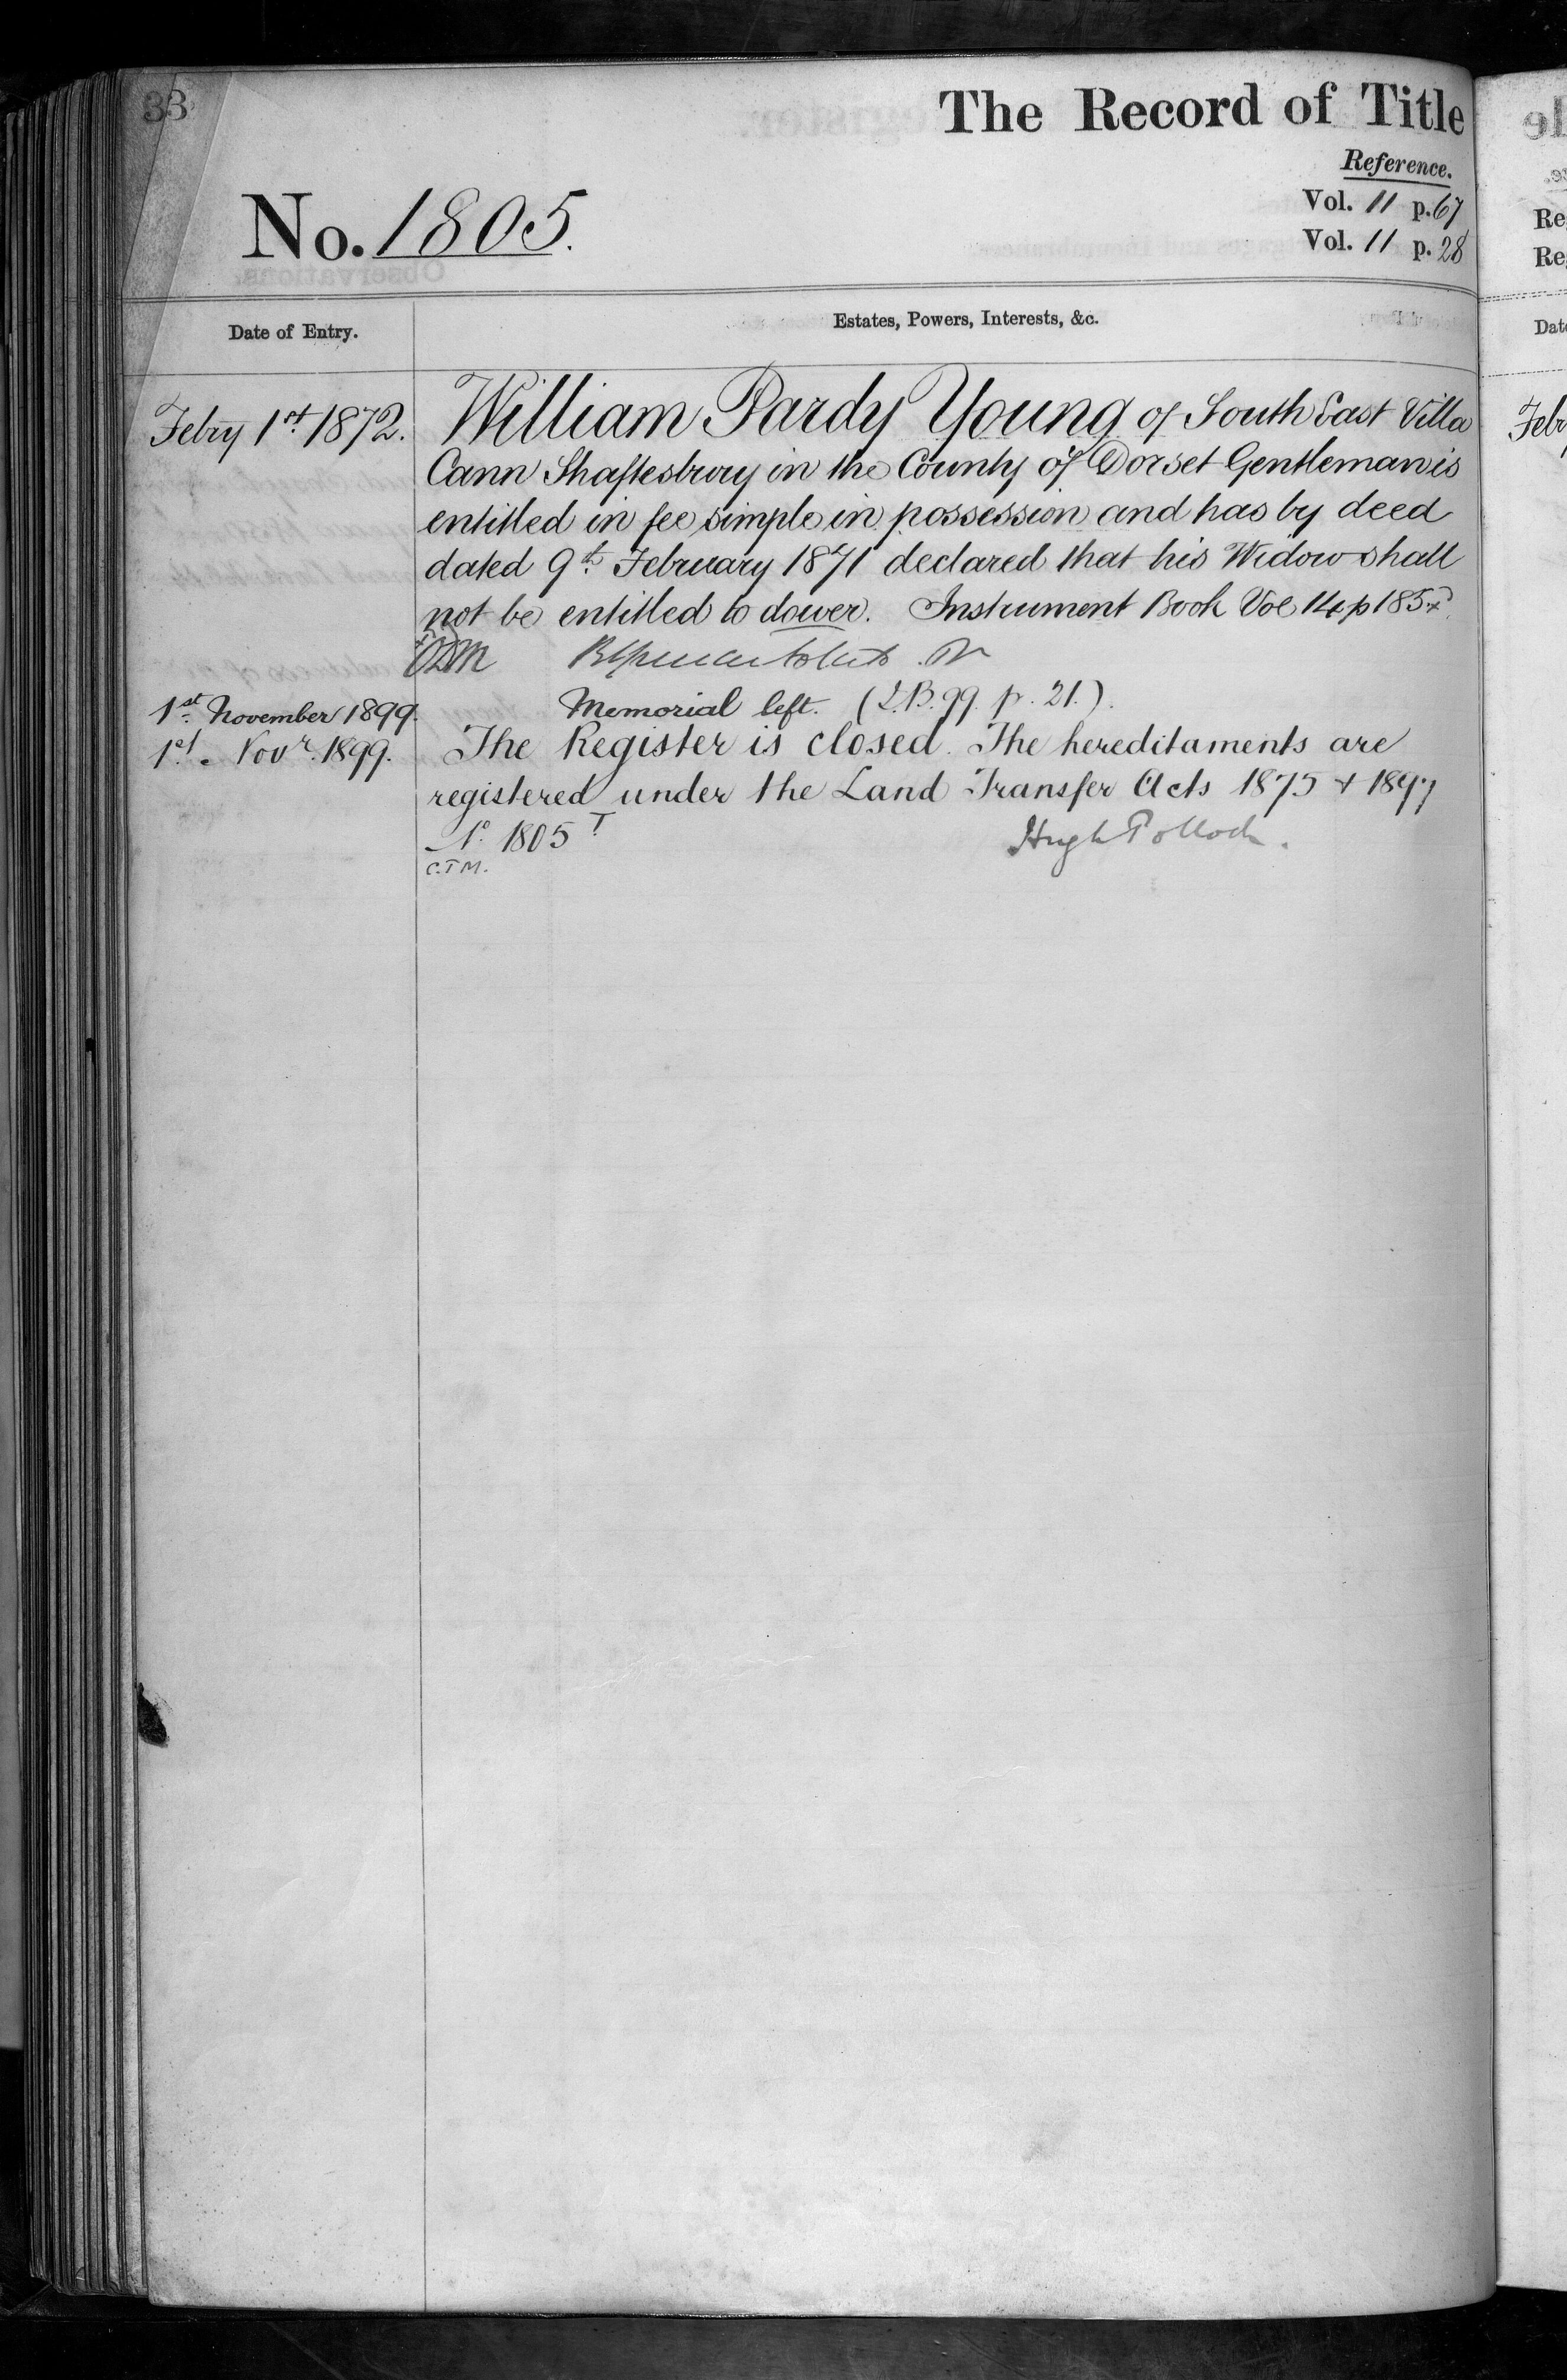 33
The Record of Title
Reference.
No. 1805.
Vol. 11 p. 67
Vol. 11 p. 28
Date of Entry.
Estates, Powers, Interests, &c.
Febry 1st 1872.
William Pardy Young of South East Villa
Cann Shaftesbury in the County of Dorset Gentleman is
entitled in fee simple in possession and has by deed
dated 9th February 1871 declared that his Widow shall
not be entitled to dower. Instrument Book Vol 14 p 185
1st November 1899.
Memorial left. (L.B. 99. p. 21.).
1st Novr. 1899.
The Register is closed. The hereditaments are
registered under the Land Transfer Acts 1875 & 1897
No. 1805 T
Hugh Pollock.
C.T.M.
Re
Re
Date
Feb